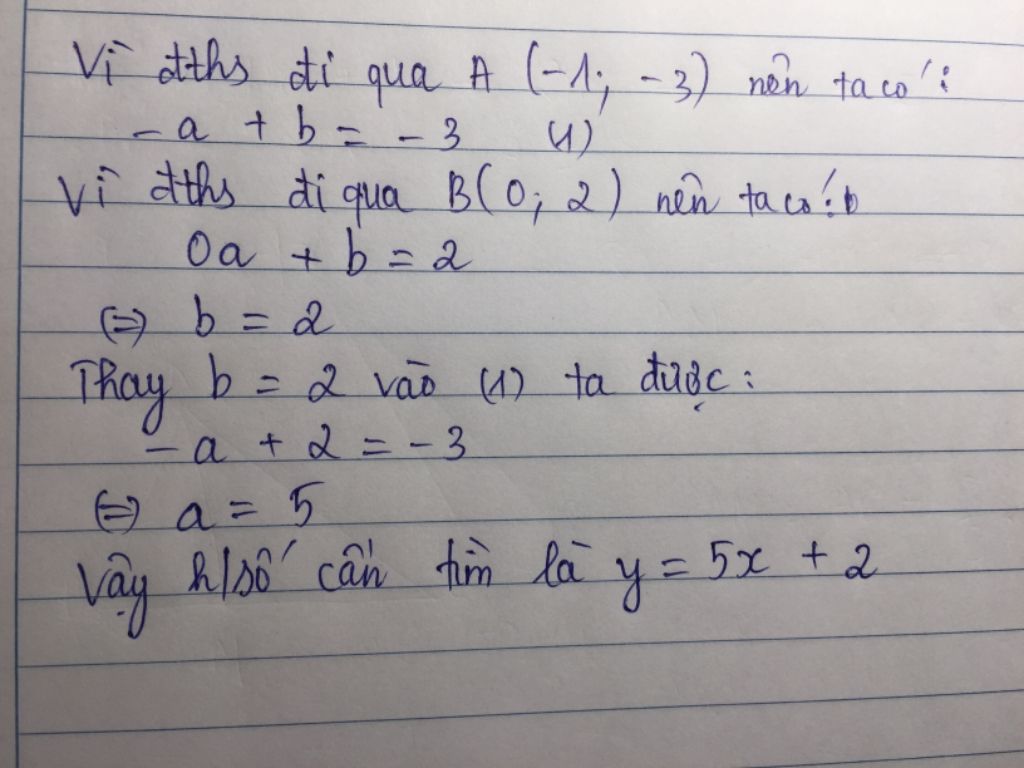 Vì đths đi qua A (-1; -3) nên ta có:
-a + b = -3 (1)
Vì đths đi qua B(0; 2) nên ta có:
0a + b = 2
(=) b = 2
Thay b = 2 vào (1) ta được:
-a + 2 = -3
(=) a = 5
Vậy h/số cần tìm là y = 5x + 2